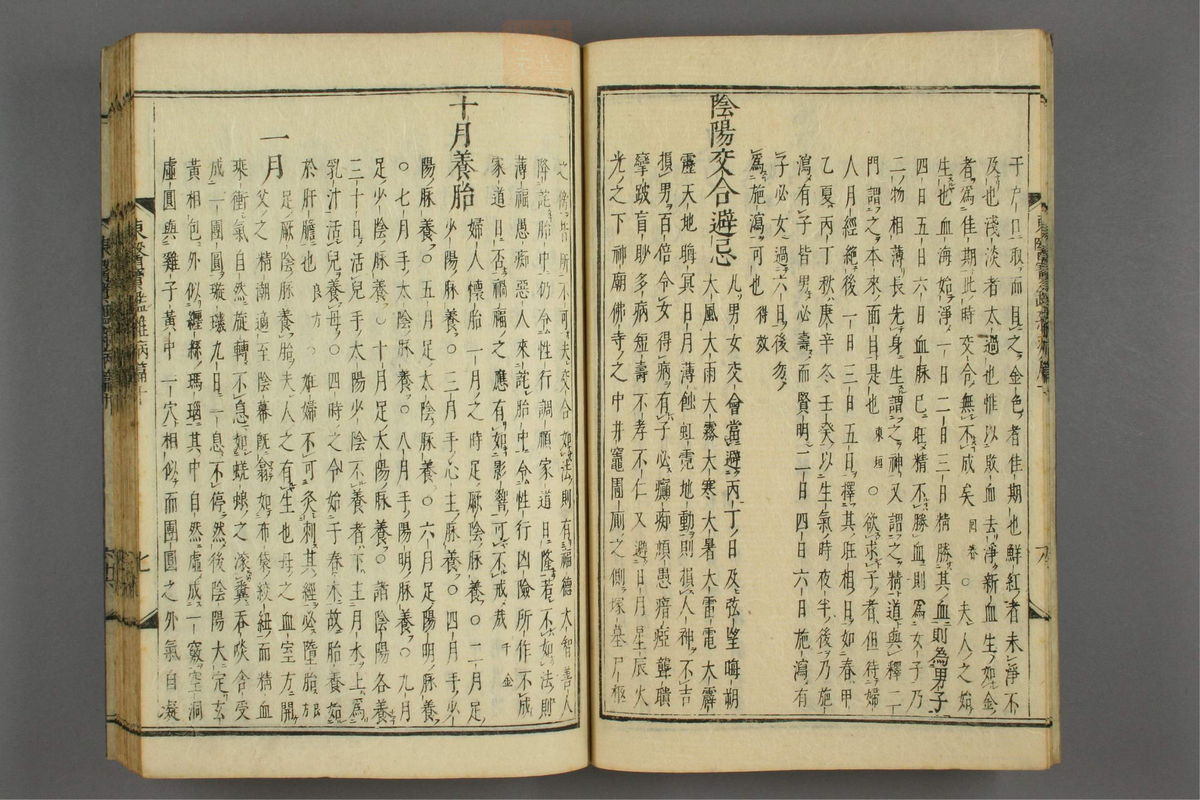 于戶口取而且之金色者佳期也鮮紅者未淨不
及也淺淡者太過也惟以敗血去淨新血生如金
者爲佳期此時交合無不成矣 回春 ○夫人之始
生也血海始淨一日二日三日精勝其血則為男子
四日五日六日血脉已旺精不勝血則爲女子乃
二物相薄長先身生謂之神又謂之精道與釋二
門謂之本來面目是也 東垣 ○欲求子者但待婦
人月經絕後一日三日五日擇其旺相日如春甲
乙夏丙丁秋庚辛冬壬癸以生氣時夜半後乃施
瀉有子皆男必壽而賢明二日四日六日施瀉有
子必女過六日後勿
爲施瀉可也 得效
陰陽交合避忌 凡男女交會當避丙丁日及弦望晦朔
大風大雨大霧大寒大暑大雷電大霹
靂天地晦冥日月薄蝕虹霓地動則損人神不吉
損男百倍令女得病有子必癲痴頑愚瘖瘂聾聵
攣跛盲眇多病短壽不孝不仁又避日月星辰火
光之下神廟佛寺之中井竈圊厠之側塚墓尸柩
之傍皆所不可夫交合如法則有福德大智善人
降詫胎中仍令性行調順家道日隆若不如法則
薄福愚痴惡人來詫胎中令性行凶險所作不成
家道日否禍福之應有如影響可不戒哉 千金
十月養胎 婦人懷胎一月之時足厥陰脉養○二月足
少陽脉養○三月手心主脉養○四月手少
陽脉養○五月足太陰脉養○六月足陽明脉養
○七月手太陰脉養○八月手陽明脉養○九月
足少陰脉養○十月足太陽脉養○諸陰陽各養
三十日活兒手太陽少陰不養者下主月水上爲
乳汁活兒養母○四時之令始于春木故胎養始
於肝膽也 良方 ○姙婦不可灸刺其經必墮胎
一月 足厥陰脉養胎夫人之有生也母之血室方開
父之精潮適至陰幕旣翕如布袋絞紐而精血
乘衝氣自然旋轉不息如蜣蜋之滾糞吞啖含受
成一團圓璇璣九日一息不停然後陰陽大定玄
黃相包外似纏絲瑪瑙其中自然虛成一竅空洞
虛圓與雞子黃中一穴相似而團圓之外氣自凝
東醫寶鑑雜病篇十
七